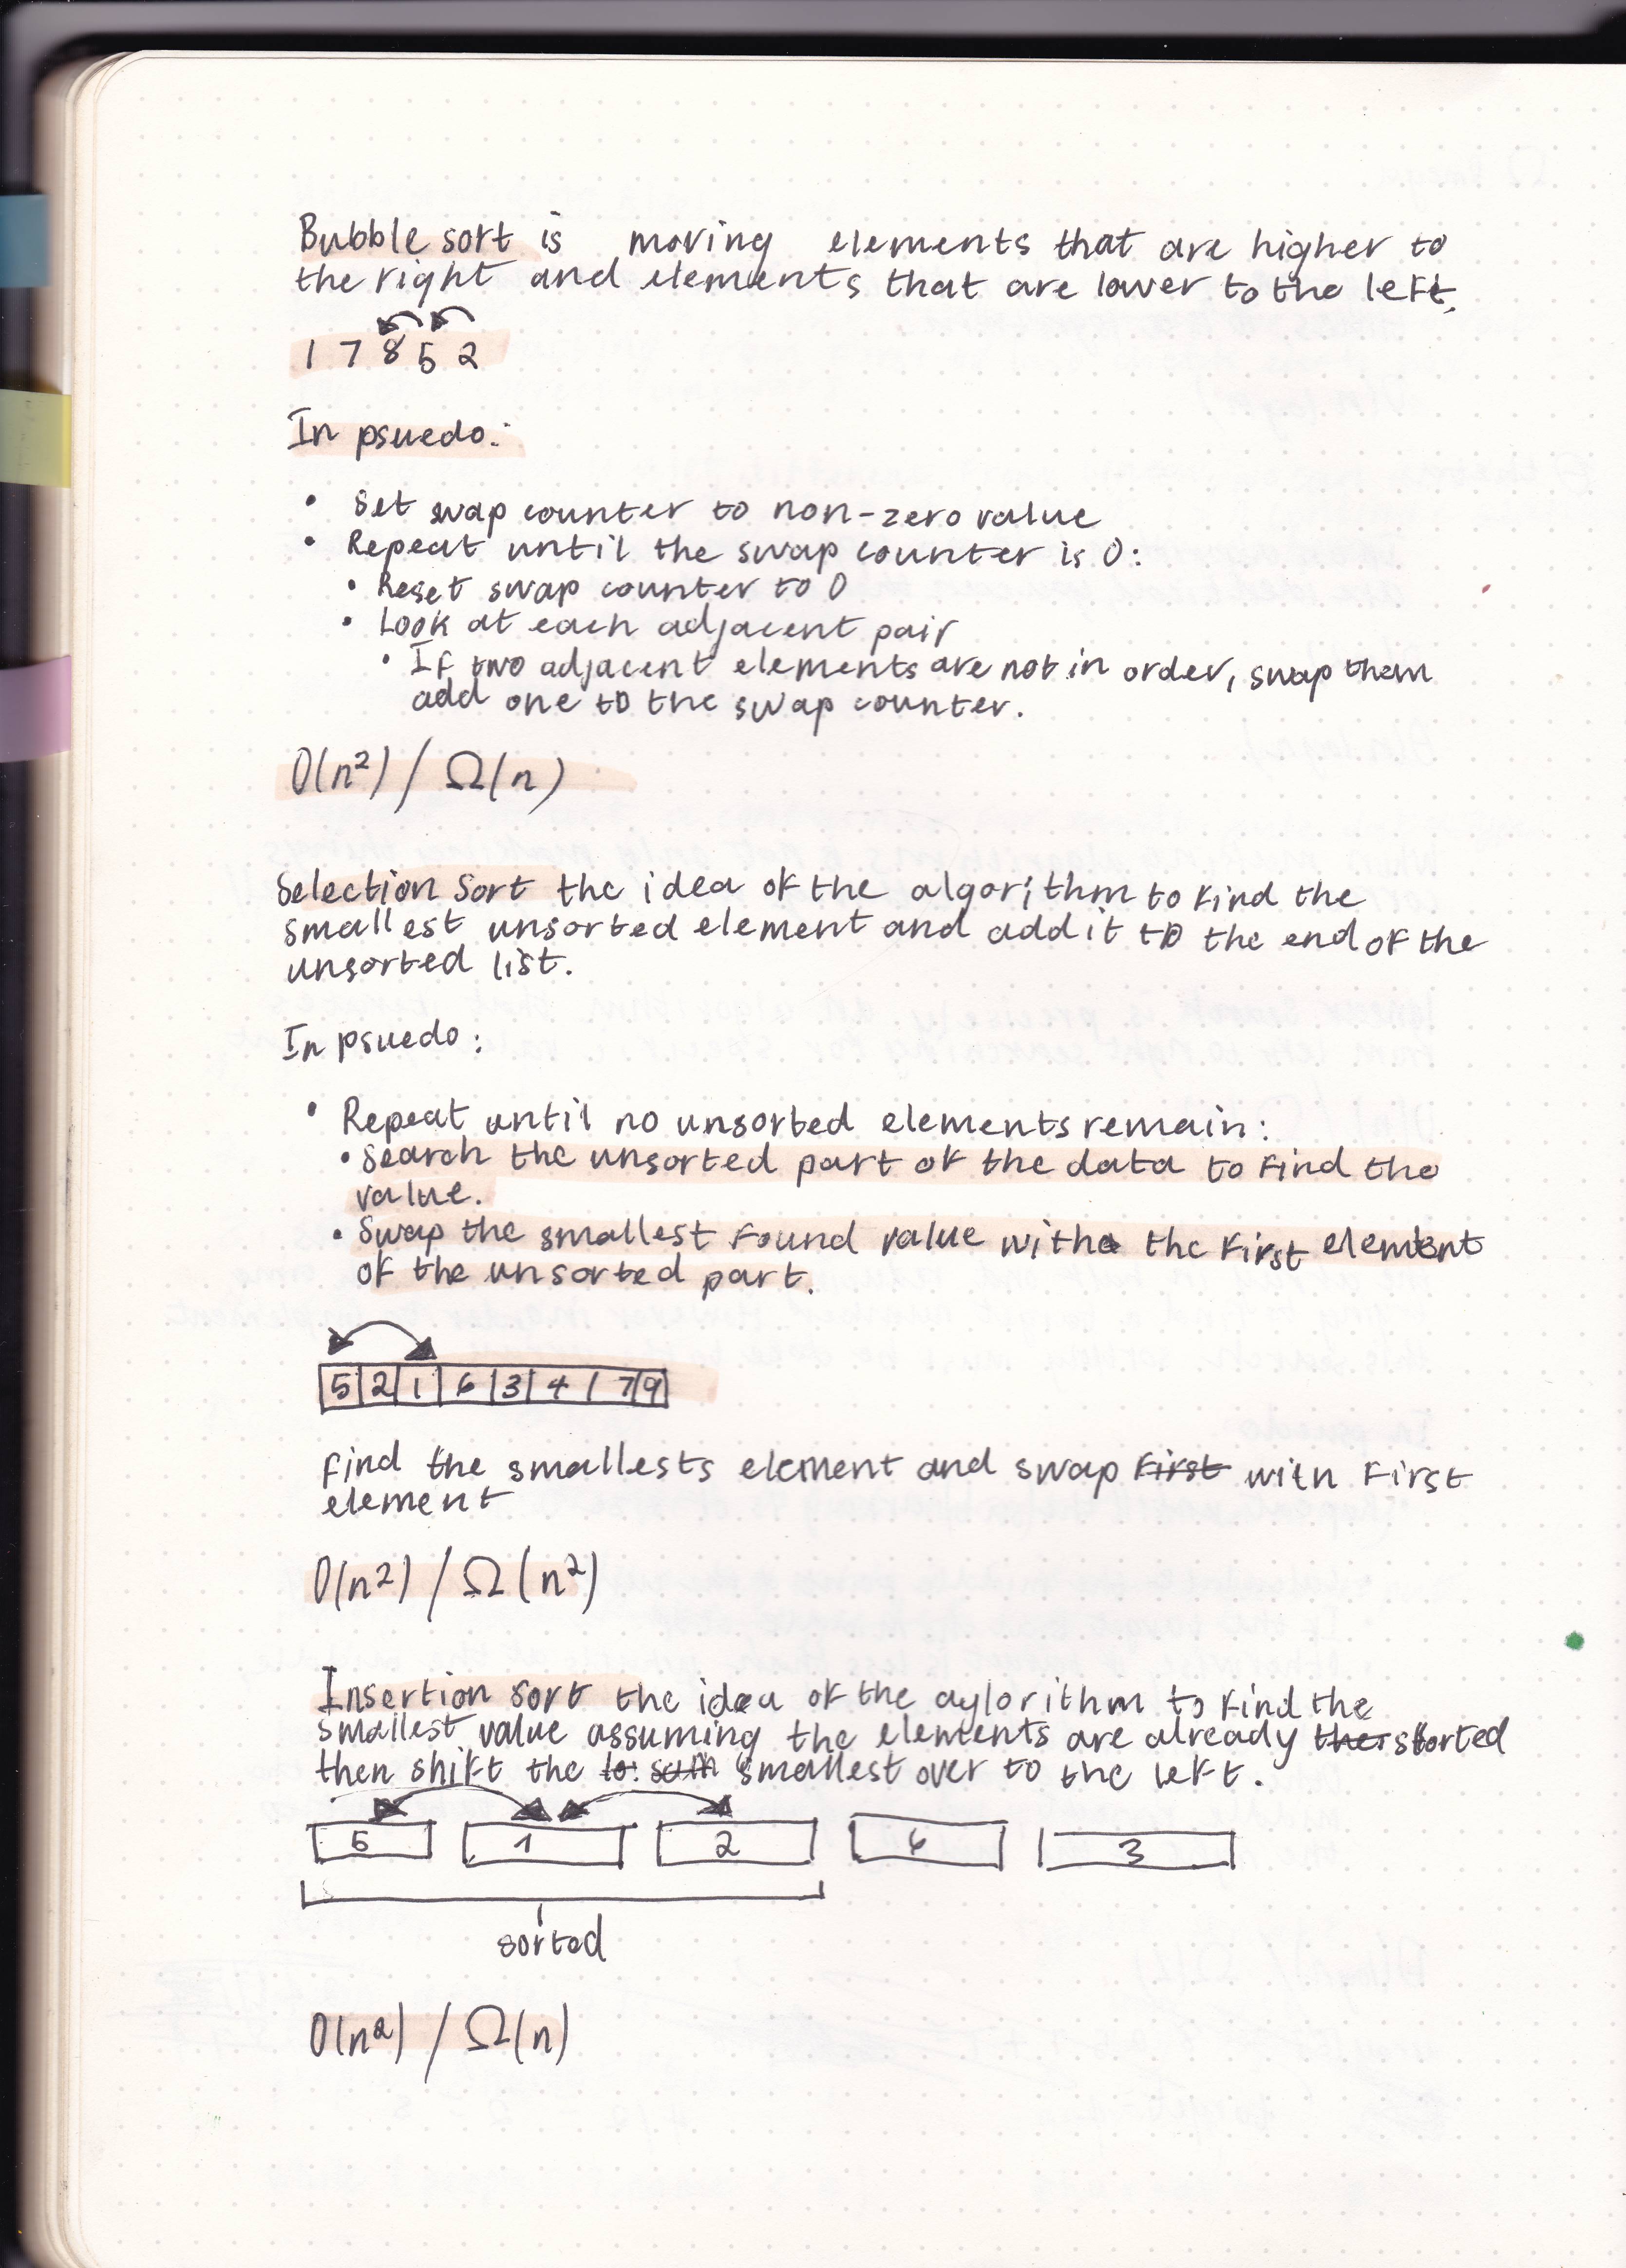 Bubble sort is moving elements that are higher to
the right and elements that are lower to the left.
1 7 8 5 2
In psuedo:
• Set swap counter to non-zero value
• Repeat until the swap counter is 0:
• Reset swap counter to 0
• Look at each adjacent pair
• If two adjacent elements are not in order, swap them
add one to the swap counter.
O(n²) / Ω(n)
Selection Sort the idea of the algorithm to find the
smallest unsorted element and add it to the end of the
unsorted list.
In psuedo:
• Repeat until no unsorted elements remain:
• Search the unsorted part of the data to find the
value.
• Swap the smallest found value with the first element
of the unsorted part.
5 2 1 6 3 4 7 9
find the smallests element and swap first with first
element
O(n²) / Ω(n²)
Insertion sort the idea of the aylorithm to find the
smallest value assuming the elements are already sorted
then shift the smallest over to the left.
5 1 2 6 3
sorted
O(n²) / Ω(n)